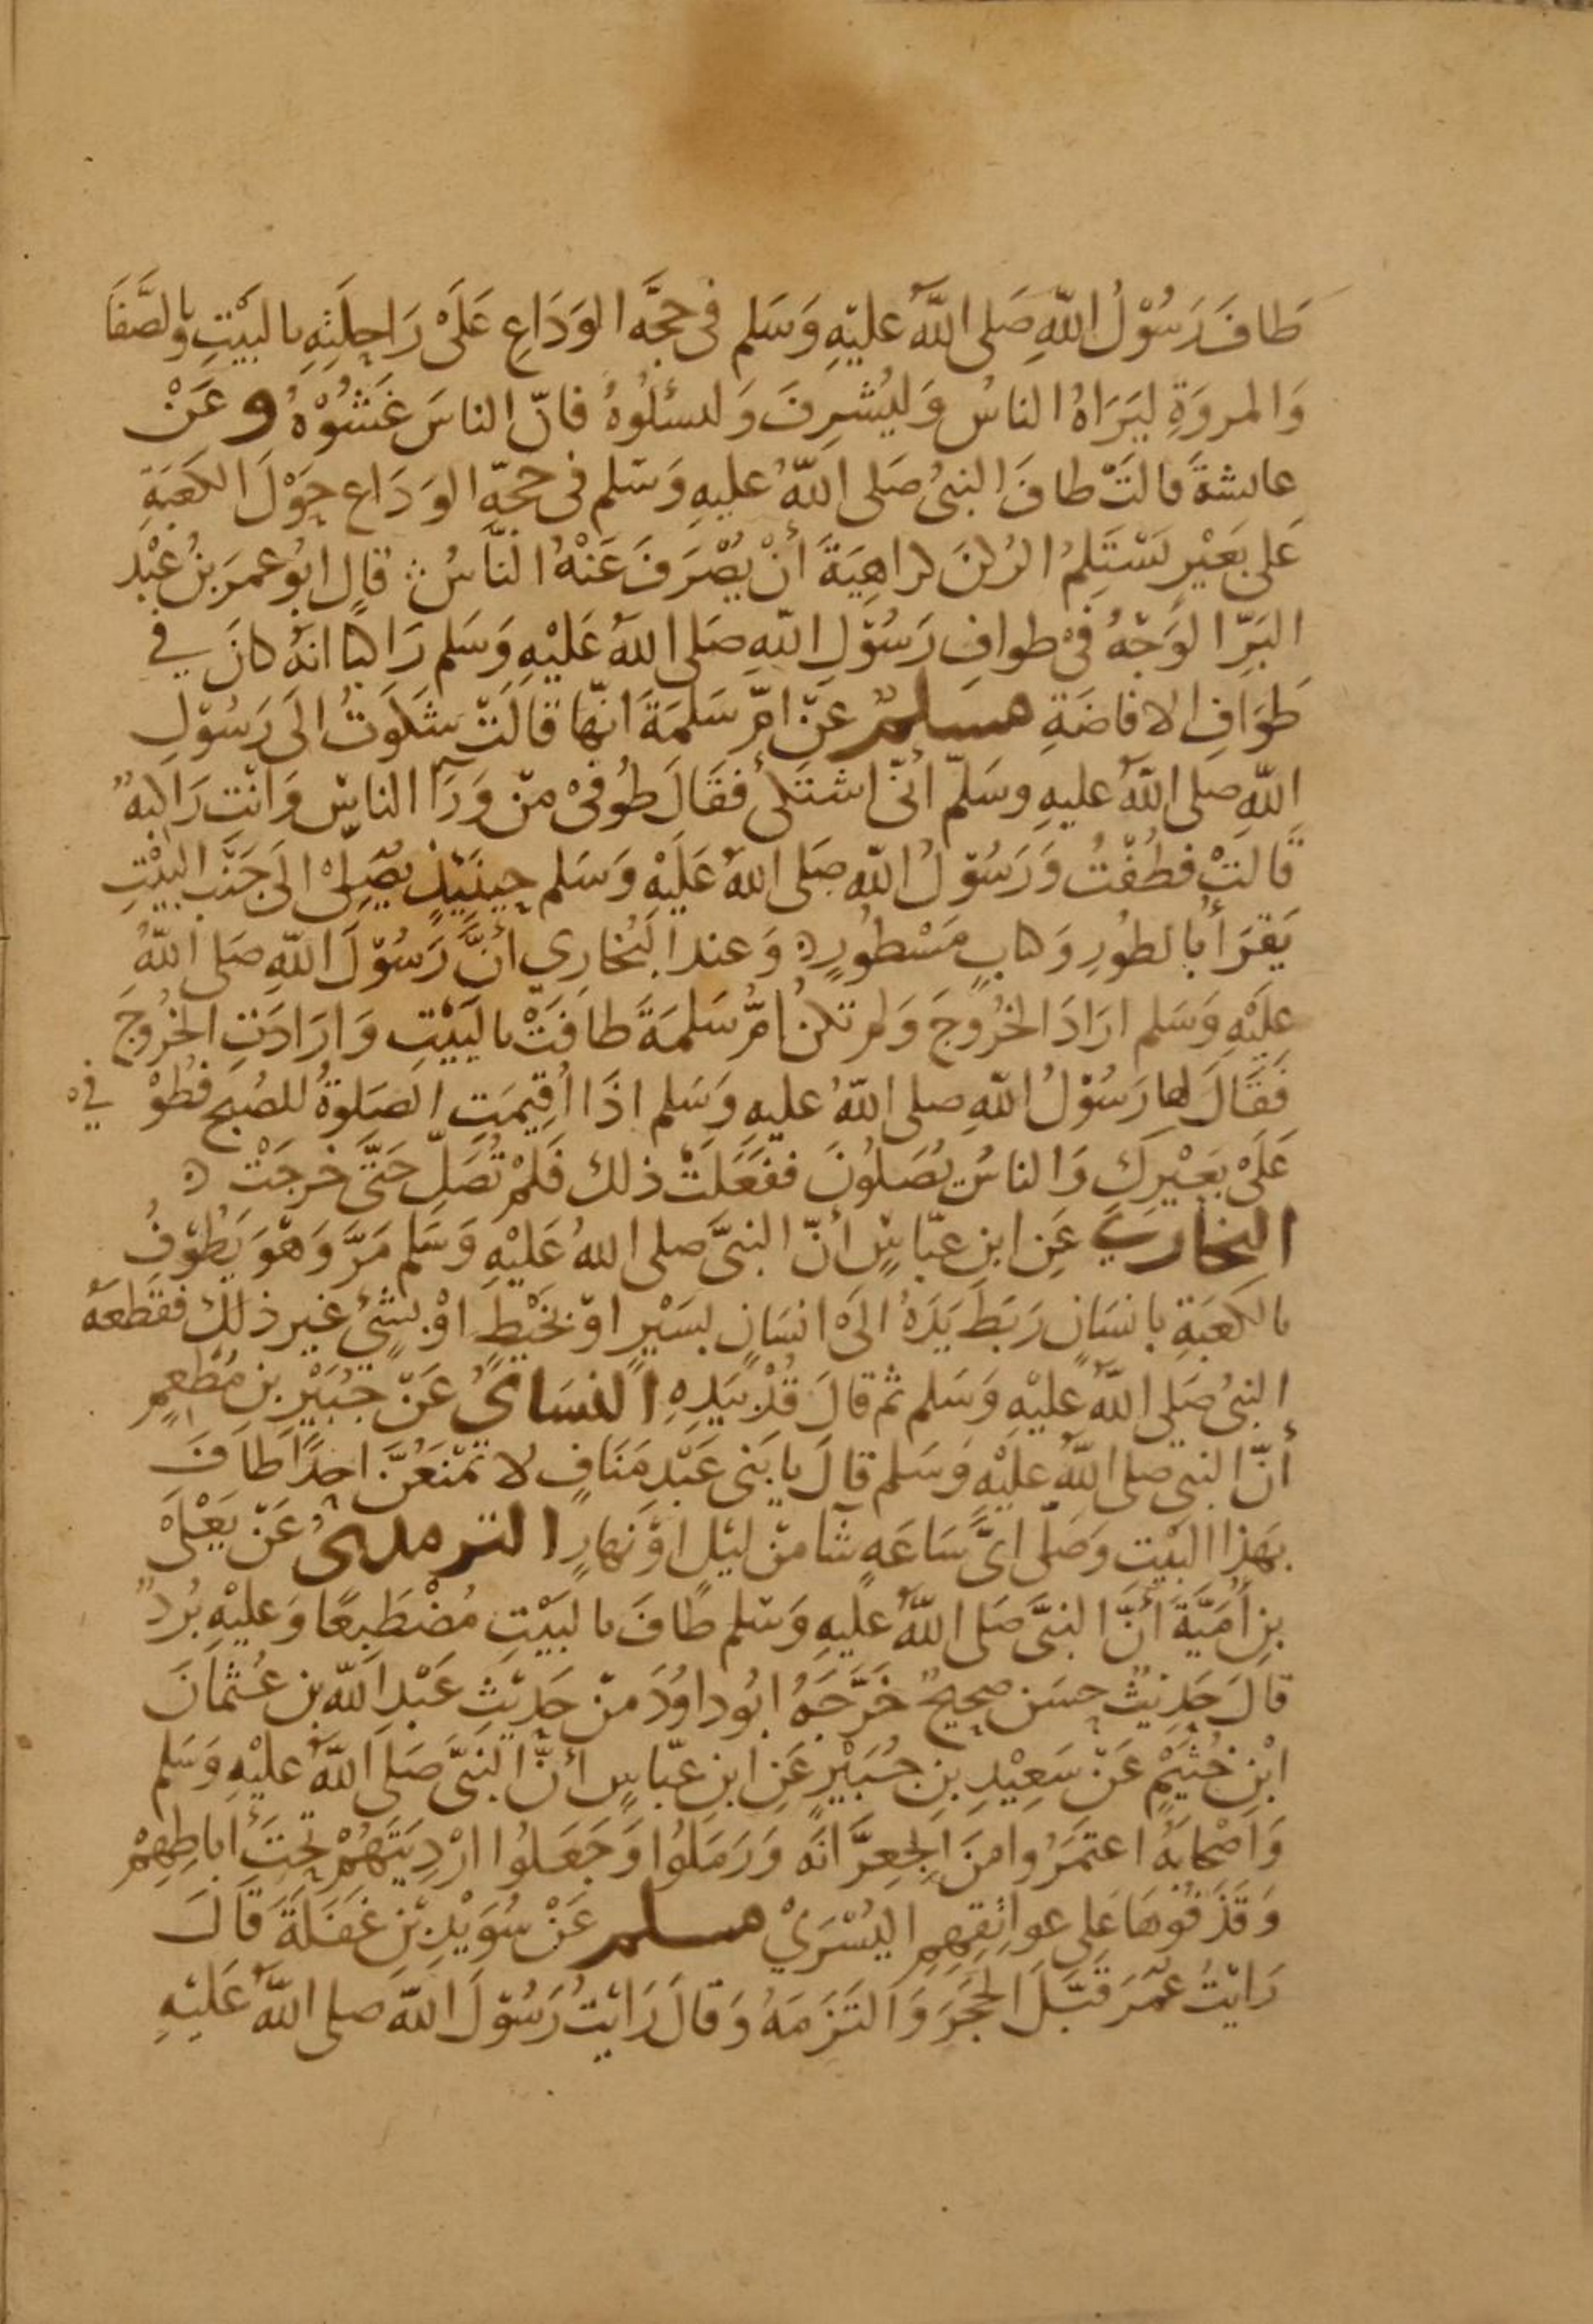 طَافَ رَسُوْلُ اللّٰهِ صَلى اللّٰهُ عليْهِ وَسَلم فى حجَّه الوَدَاعِ عَلَىْ رَاحِلَتِهِ بالبَيْتِ وبالصَّفَا
وَالمروَةِ ليَرَاهُ الناسُ وَليُشرِفَ وَلىسئلُوهُ فانّ الناسَ غَشُوْهُ وعَنْ
عايشةَ قالتْ طافَ النبىُ صَلى اللّٰهُ عليهِ وَسَلم فى حجّهِ الوَدَاع حَوْلَ الكَعَبَةِ
عَلى بَعَيْرٍ يَسْتَلِمُ الرُكنَ كراهِيَةَ أنْ يُصْرَفَ عَنْهُ النَّاسُ قالَ ابُو عمَرَ بنُ عَبْدِ
البَرِّ الوَجْهُ فىْ طوافِ رَسُوْلِ اللّٰهِ صَلى اللّٰهُ عَلَيْهِ وَسَلم رَاكبا انهُ كانَ فى
طَوَافِ الافاضَةِ مسلمٌ عَنْ امِّ سَلمَةَ انّها قَالَتْ شكَوتُ الَى رَسُوْلِ
اللّٰهِ صلى اللّٰهُ عليهِ وسَلّم أنّى اشتَكى فقَالَ طُوفىْ منْ وَرَآ الناسِ وَانْتِ رَاكبهٌ
قَالتْ فطُفْتُ وَرَسُوْلُ اللّٰهِ صَلى اللّٰهُ عَلَيْهِ وَسَلم حِينَيْذٍ يُصَلِىْ الَى جَنْبِ البَيْتِ
يَقرَأ بالطُورِ وَكتابٍ مَسْطُورٍ وَعندَ البُخَارِي أنَّ رَسُوْلَ اللّٰهِ صَلى اللّٰهُ
عليْهِ وَسَلم ارَادَ الخُرُوجَ وَلم تكنُ امُّ سَلمَةَ طافَتْ بالبَيْتِ وَارَادَتِ الخُرُوجَ
فَقَالَ لها رَسُوْلُ اللّٰهِ صلى اللّٰهُ عليهِ وَسَلم اذَا اُقِيمَتِ الصَلوةُ للصُبح فطُوْفىْ
عَلَىْ بَعَيْرِكِ وَالناسُ يُصَلونَ ففعَلَتْ ذلك فَلَمْ تُصَلّ حَتَّى خرجَتْ
البخارى عَنِ ابنِ عبّاسٍ أنّ النبىَّ صلى اللّٰهُ عَلَيْهِ وَسَلم مَرَّ وَهْوَ يَطُوْفُ
بالكَعَبَةِ بانسَانٍ رَبَطَ يَدَهُ الَى انسَانٍ بسَيْرٍ اوْ بخَيْطٍ اوْ بشىْءٍ غيرِ ذلكِ فقطَعَهُ
النبىُ صَلى اللّٰهُ عليْهِ وَسَلم ثم قالَ قُدْ بيَدِهِ النسَاىُ عَنْ جُبَيْرِ بنِ مُطعِمٍ
أنّ النبى صلى اللّٰهُ عليْهِ وَسَلم قالَ يا بَنى عَبْدِ مَنَافٍ لا تمْنَعُنَّ احدًا طَافَ
بهَذا البَيْتِ وَصَلّى اىَّ سَاعَهٍ شآ منْ ليْلٍ اوْ نهارٍ الترمذىُ عَنْ يَعْلَىْ
بنِ أُمَيَّةَ أنَّ النبىَّ صَلى اللّٰهُ عليهِ وَسَلم طَافَ بالبَيْتِ مُضْطَبعًا وَعليْهِ بُردٌ
قالَ حَدِيْثٌ حسَنٌ صحيحٌ خَرَّجَهُ ابُو داوُدَ منْ حَدِيْثِ عَبْدِ اللّٰهِ بنِ عُثمانَ
ابْنِ خُثَيْمٍ عَنْ سَعِيْدِ بنِ جُبَيْرٍ عَنِ ابنِ عبّاسٍ أنّ النَبىَّ صَلى اللّٰهُ عليْهِ وَسَلم
وَاصْحابَهُ اعتمَرُوا منَ الجعِرَّانَه وَرَمَلوُا وَجَعَلوُا ارْدِيَتَهُمْ تحْتَ أباطِهِمْ
وَقَذفُوهَا عَلى عواتِقِهِمِ اليُسْرَىْ مسلم عَنْ سُوَيْدِ بْنِ غفَلَةَ قَالَ
رَايْتُ عُمَرَ قَبّلَ الحجَرَ وَالتَزَمَهُ وَقالَ رَايْتُ رَسُوْلَ اللّٰهِ صلى اللّٰهُ عَليْهِ